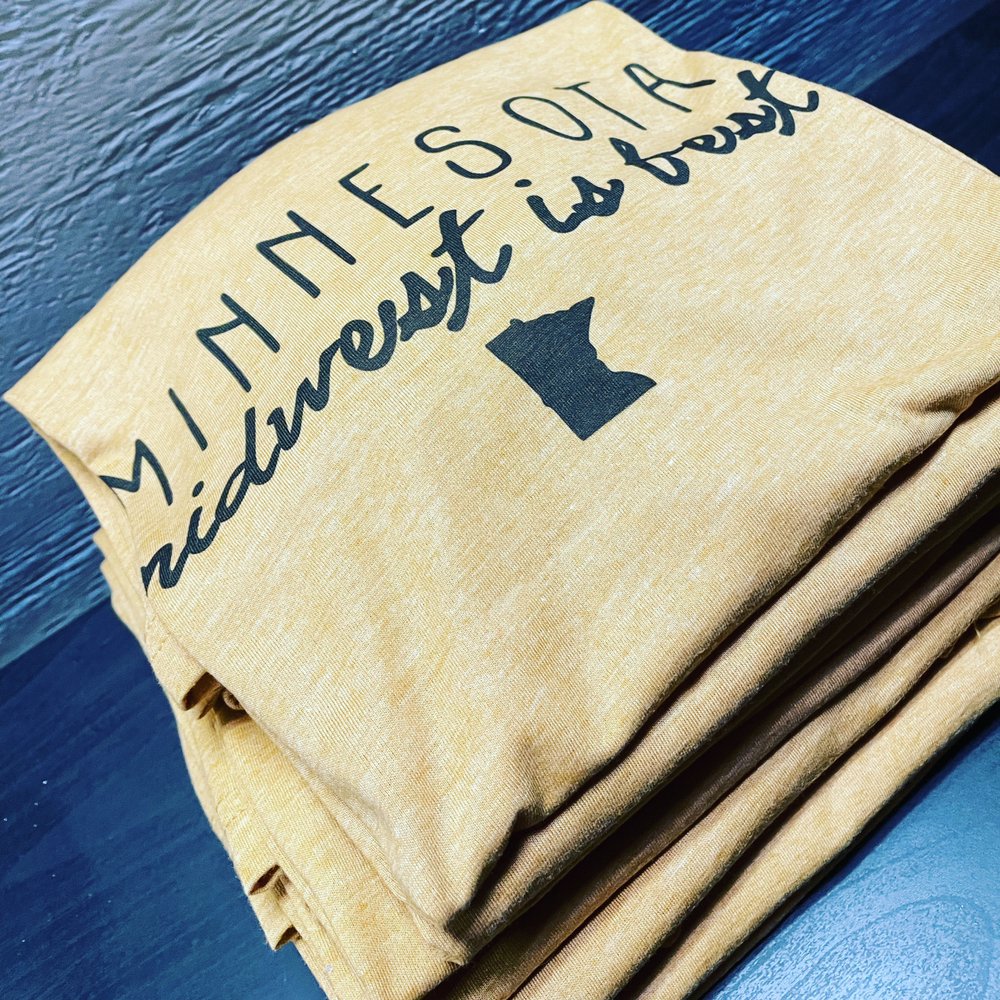 MINNESOTA
midwest is best